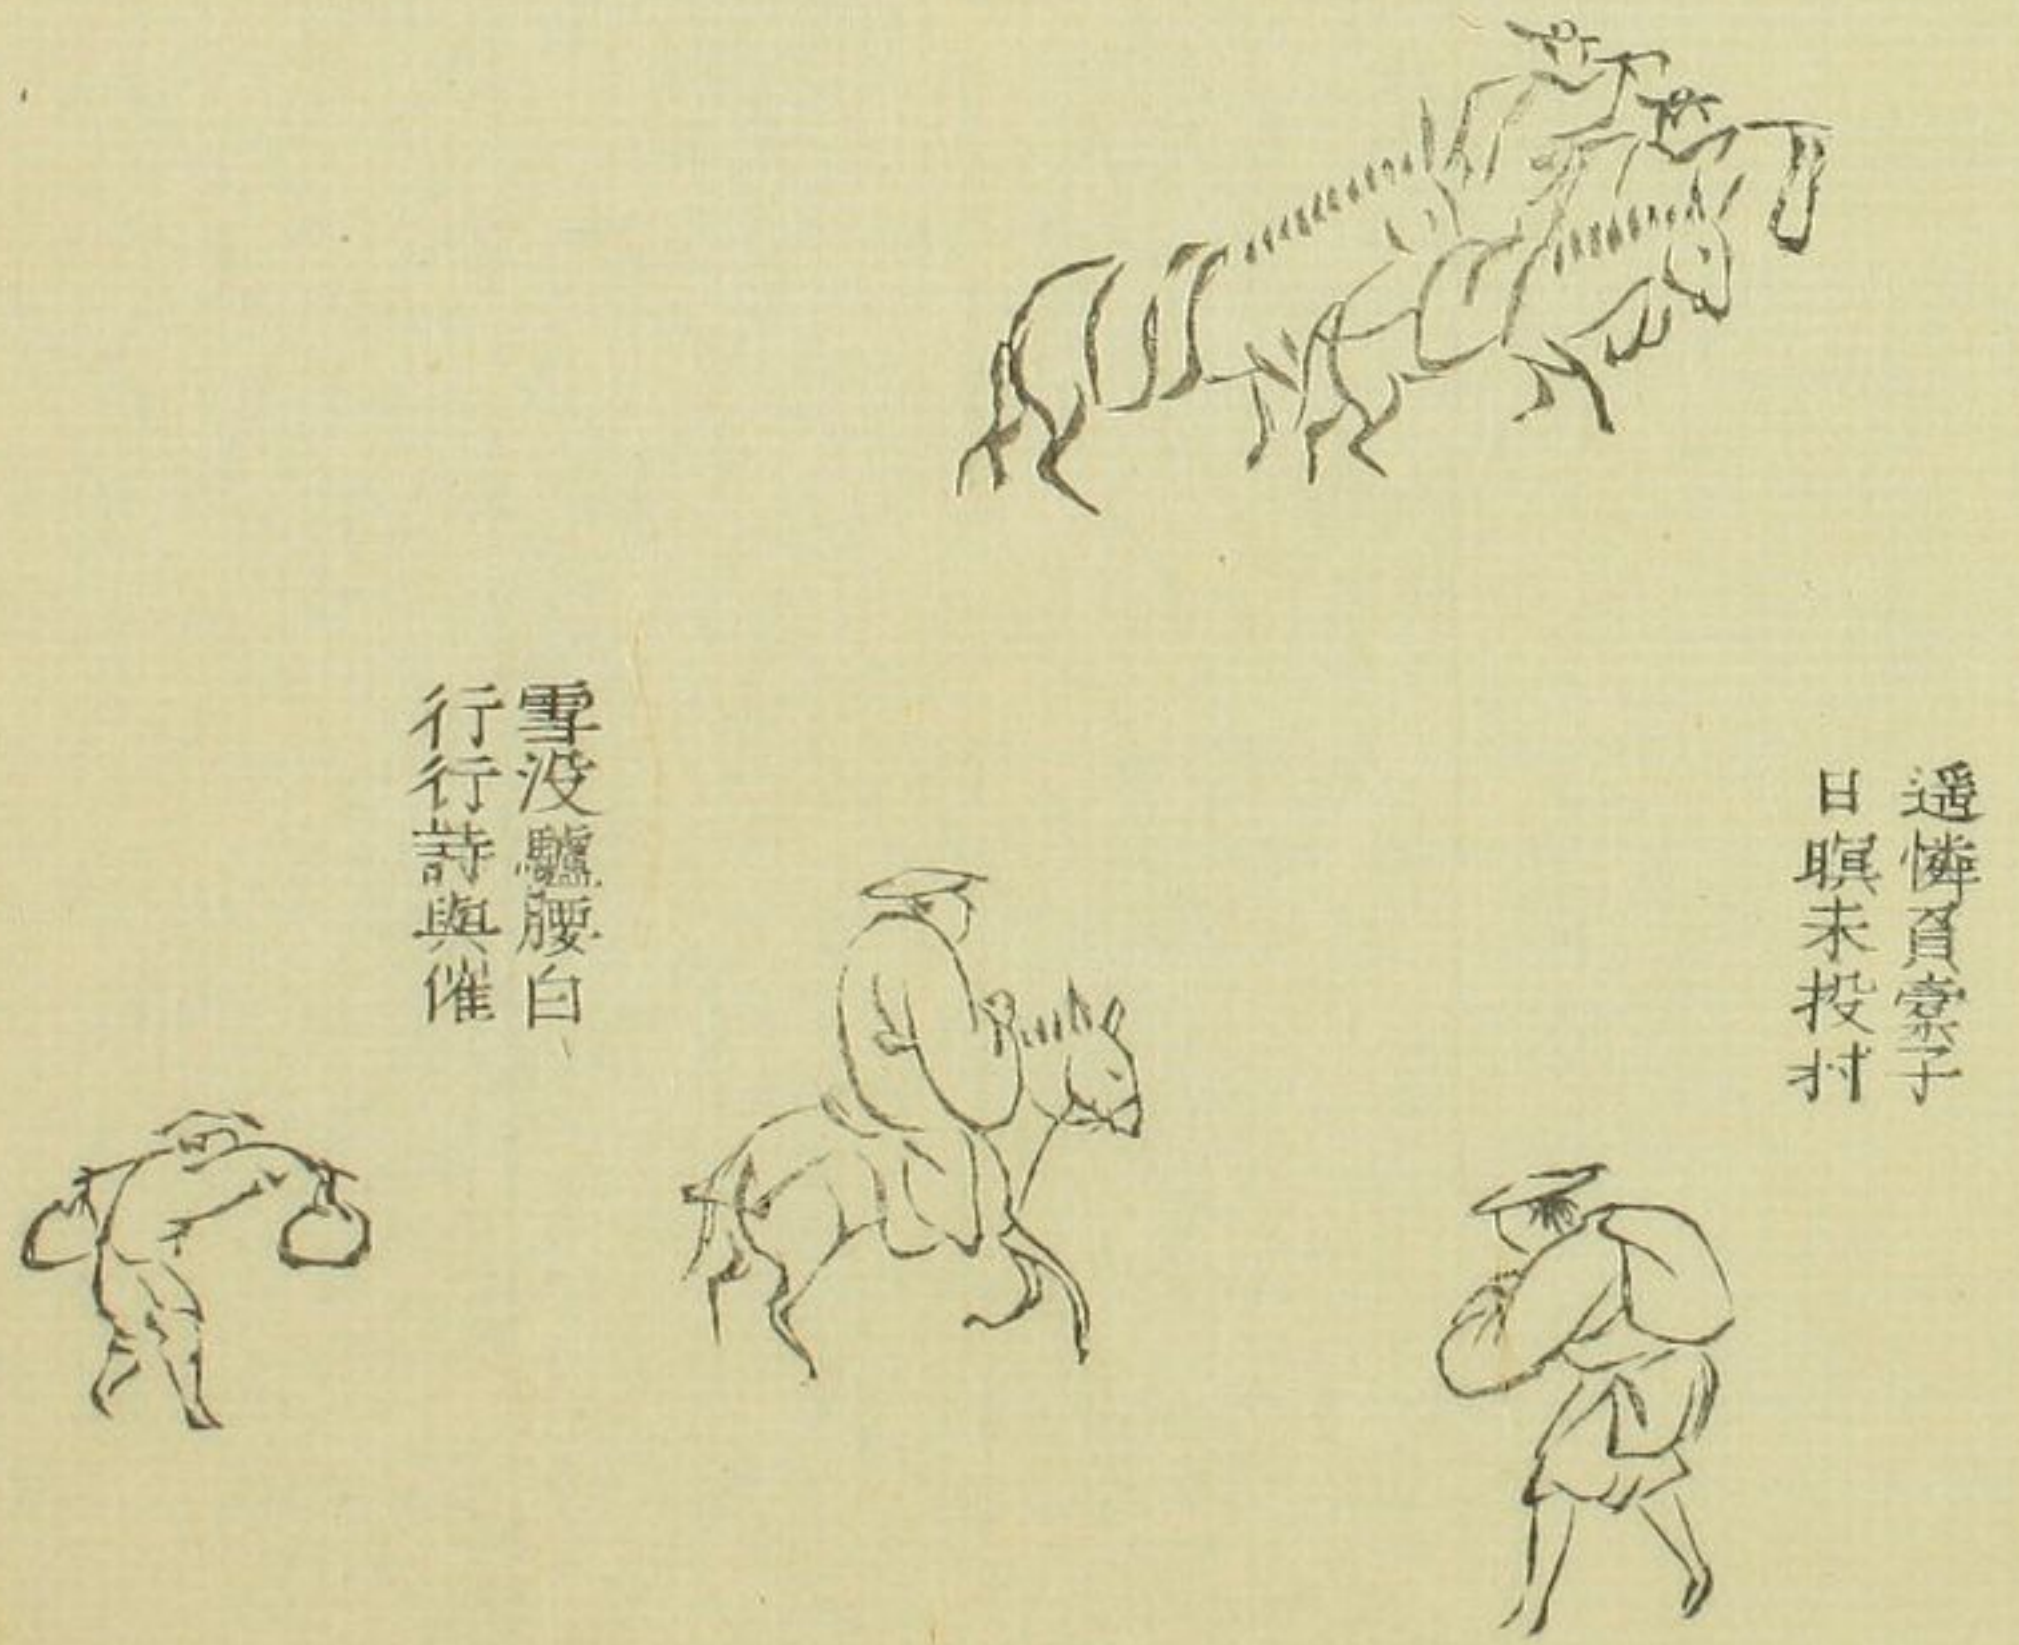 遥憐負橐子
日暝未投村
雪没驢腰白
行行詩與催